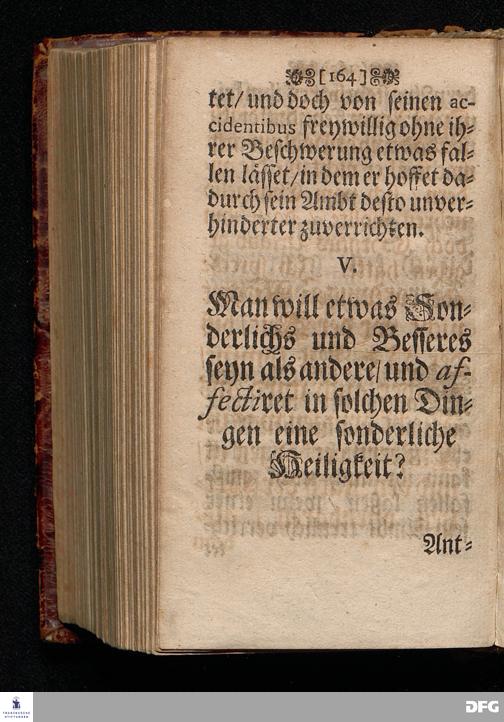 [164]
tet/ und doch von seinen ac-
cidentibus freywillig ohne ih-
rer Beschwerung etwas fal-
len lässet/ in dem er hoffet da-
durch sein Ambt desto unver-
hinderter zuverrichten.
V.
Man will etwas Son-
derlichs und Besseres
seyn als andere/ und af-
fectiret in solchen Din-
gen eine sonderliche
Heiligkeit?
Ant-
FRANCKESCHE
STIFTUNGEN
DFG